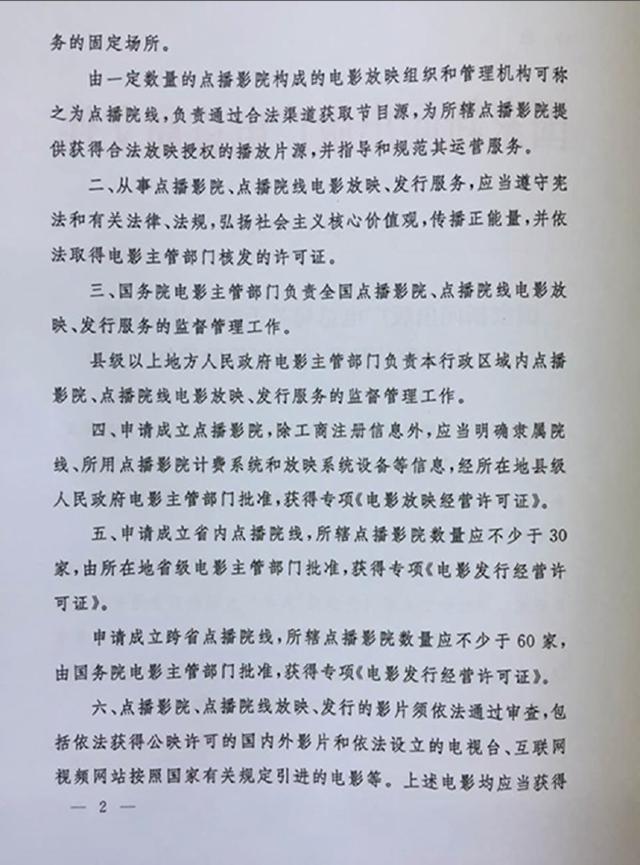 务的固定场所。
由一定数量的点播影院构成的电影放映组织和管理机构可称
之为点播院线,负责通过合法渠道获取节目源,为所辖点播影院提
供获得合法放映授权的播放片源,并指导和规范其运营服务。
二、从事点播影院、点播院线电影放映、发行服务,应当遵守宪
法和有关法律、法规,弘扬社会主义核心价值观,传播正能量,并依
法取得电影主管部门核发的许可证。
三、国务院电影主管部门负责全国点播影院、点播院线电影放
映、发行服务的监督管理工作。
县级以上地方人民政府电影主管部门负责本行政区域内点播
影院、点播院线电影放映、发行服务的监督管理工作。
四、申请成立点播影院,除工商注册信息外,应当明确隶属院
线、所用点播影院计费系统和放映系统设备等信息,经所在地县级
人民政府电影主管部门批准,获得专项《电影放映经营许可证》。
五、申请成立省内点播院线,所辖点播影院数量应不少于30
家,由所在地省级电影主管部门批准,获得专项《电影发行经营许
可证》。
申请成立跨省点播院线,所辖点播影院数量应不少于60家,
由国务院电影主管部门批准,获得专项《电影发行经营许可证》。
六、点播影院、点播院线放映、发行的影片须依法通过审查,包
括依法获得公映许可的国内外影片和依法设立的电视台、互联网
视频网站按照国家有关规定引进的电影等。上述电影均应当获得
— 2 —